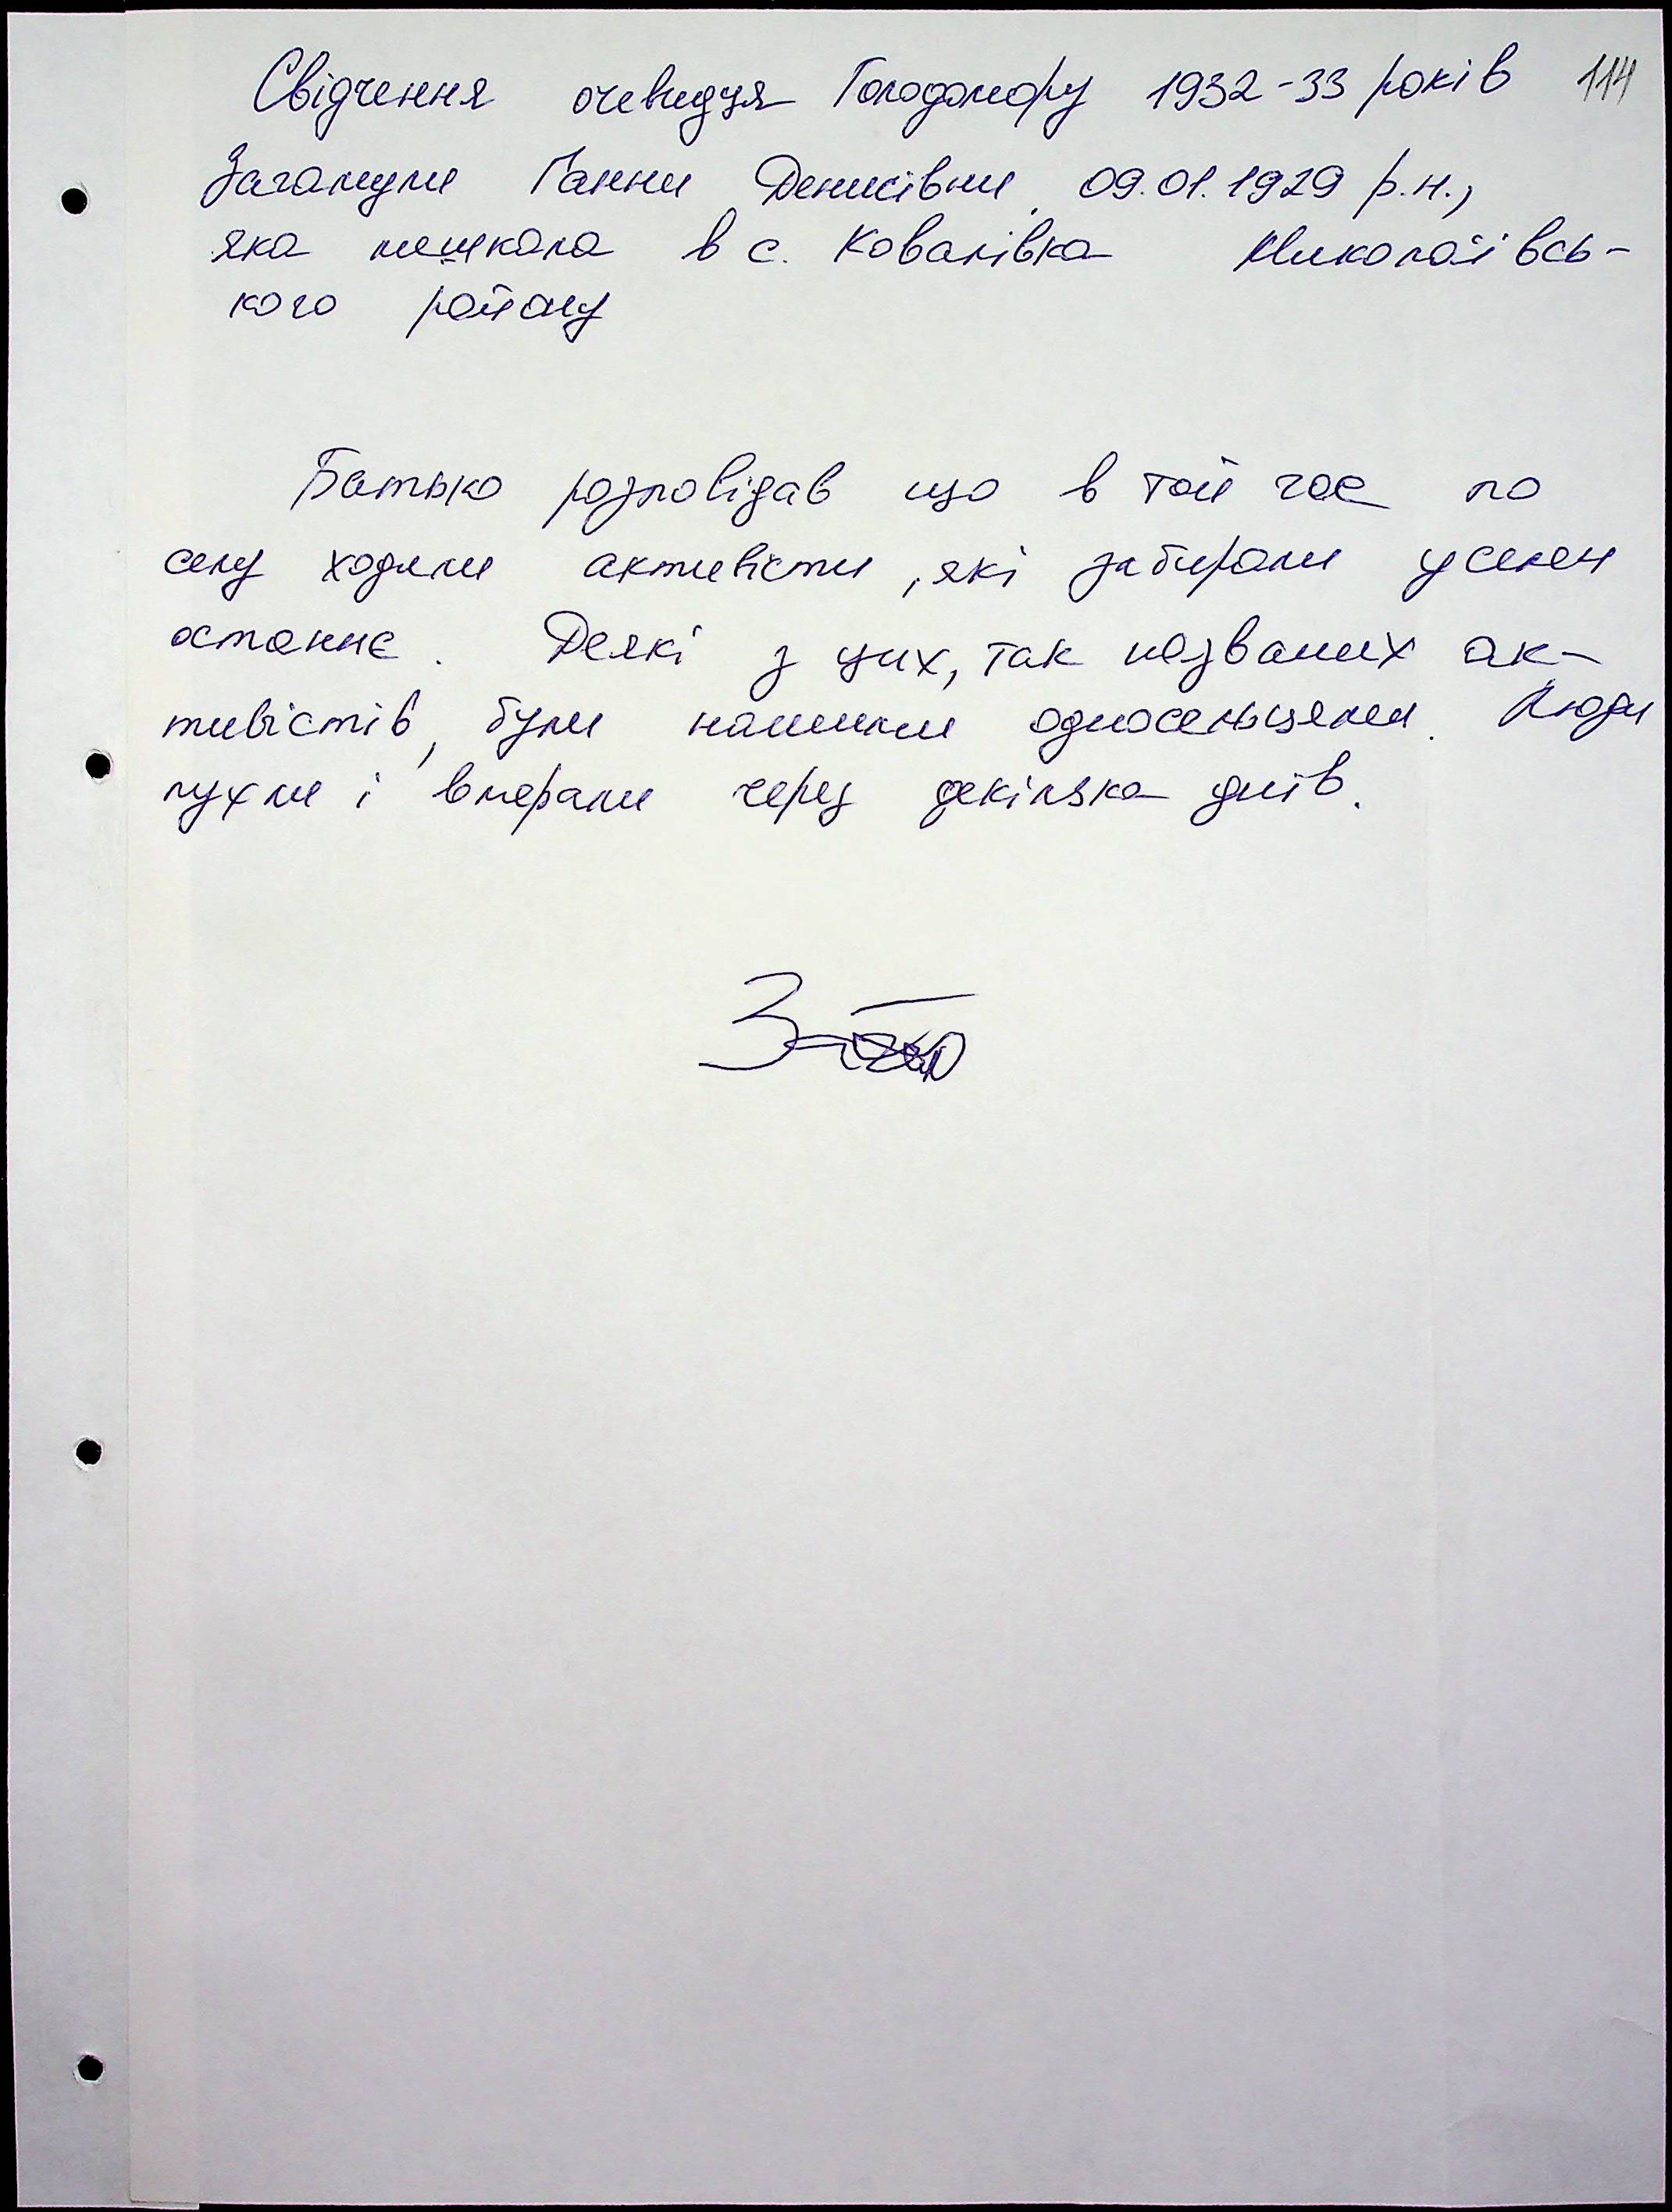 Свідчення очевидця Голодомору 1932-33 років 114
Загамули Ганни Денисівни, 09.01.1929 р.н.,
яка мешкала в с. Ковалівка Миколаївсь-
кого району
Батько розповідав що в той час по
селу ходили активісти, які забирали усе
останнє. Деякі з цих, так названих ак-
тивістів, були нашими односельцями. Люди
пухли і вмерали через декілька днів.